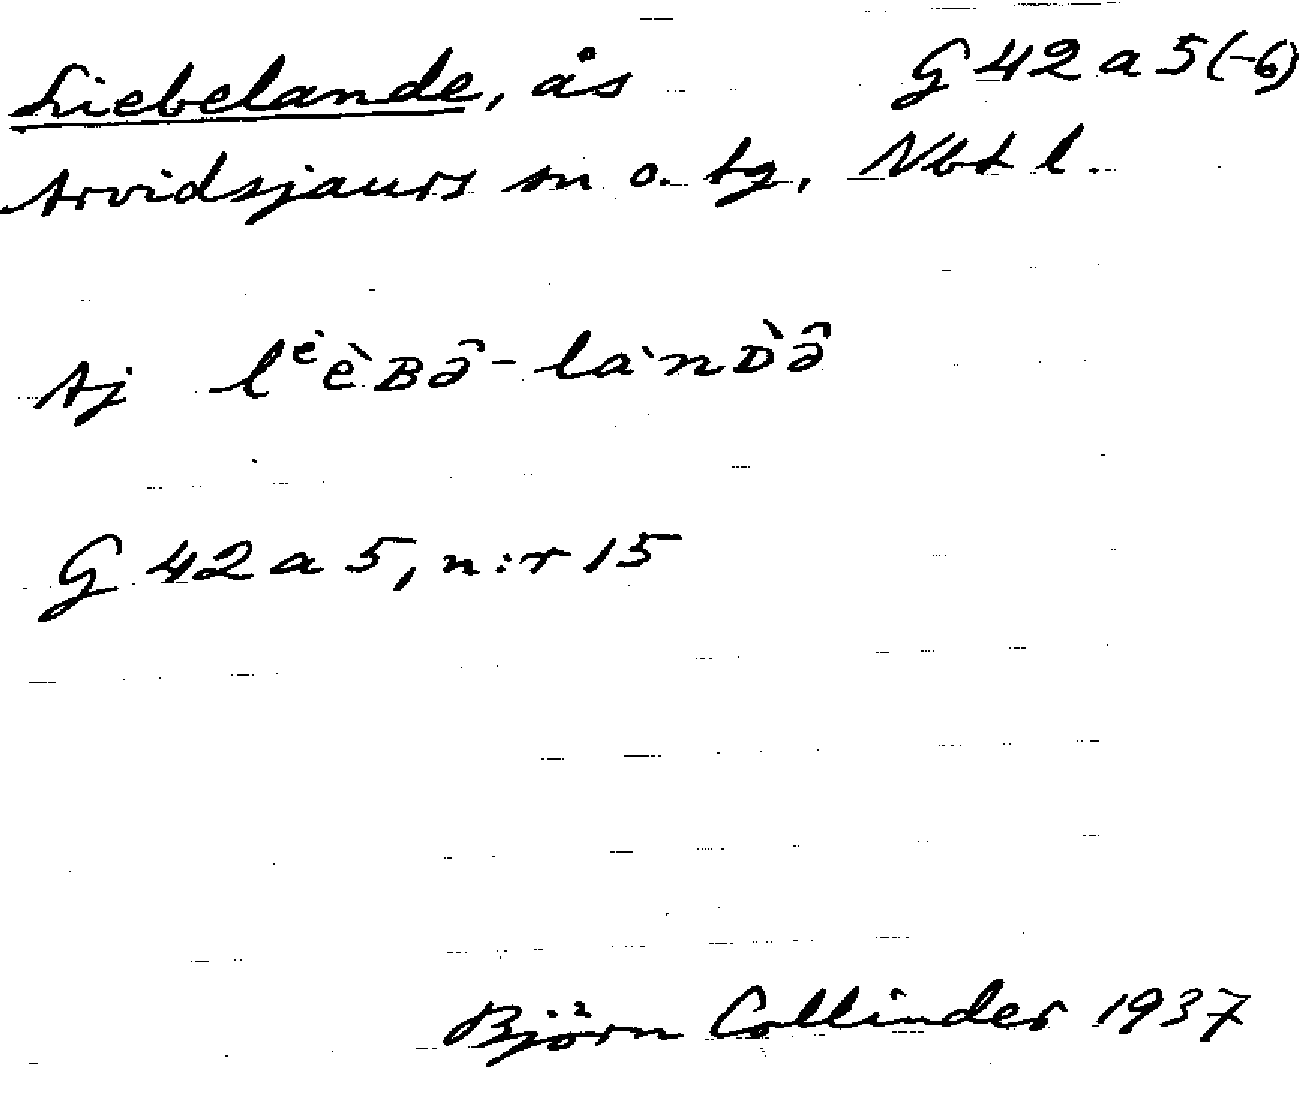 Liebelande, ås G 42 a 5(-6)
Arvidsjaurs sn o. tg, Nbt l.
Aj lᵉ̀èBə̂-là'nD̀ə̂
G 42 a 5, n:r 15
Björn Collinder 1937